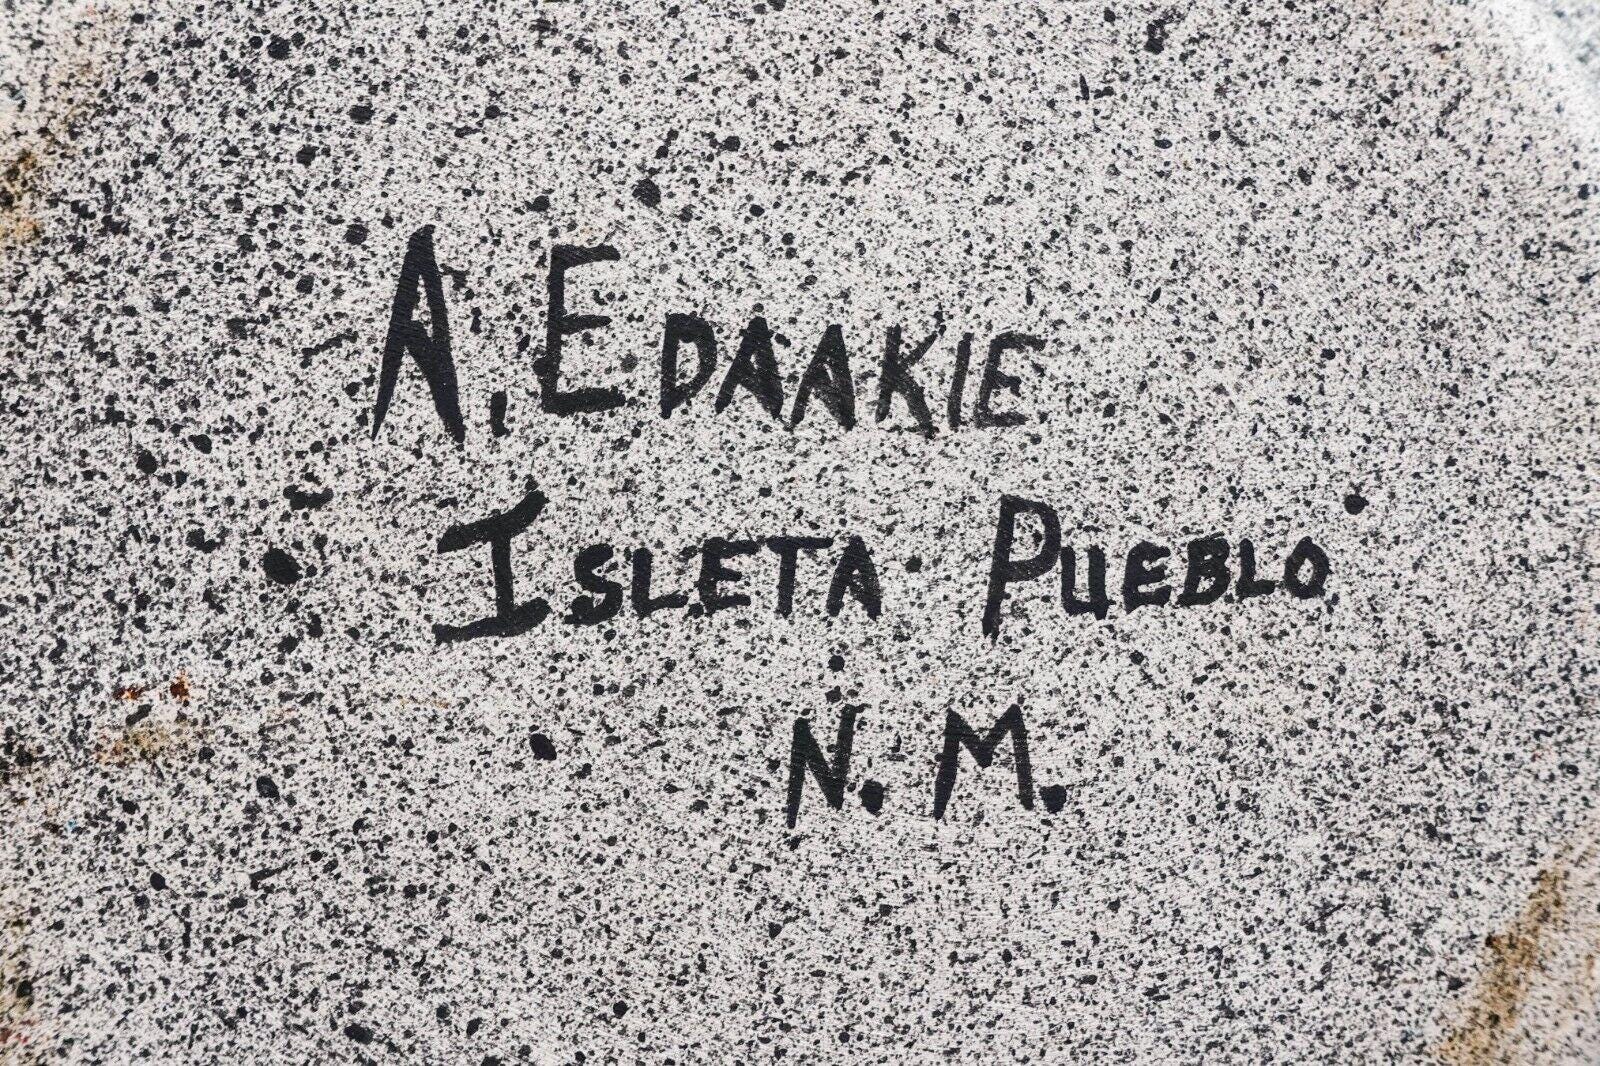 A. EDAAKIE
ISLETA PUEBLO
N. M.